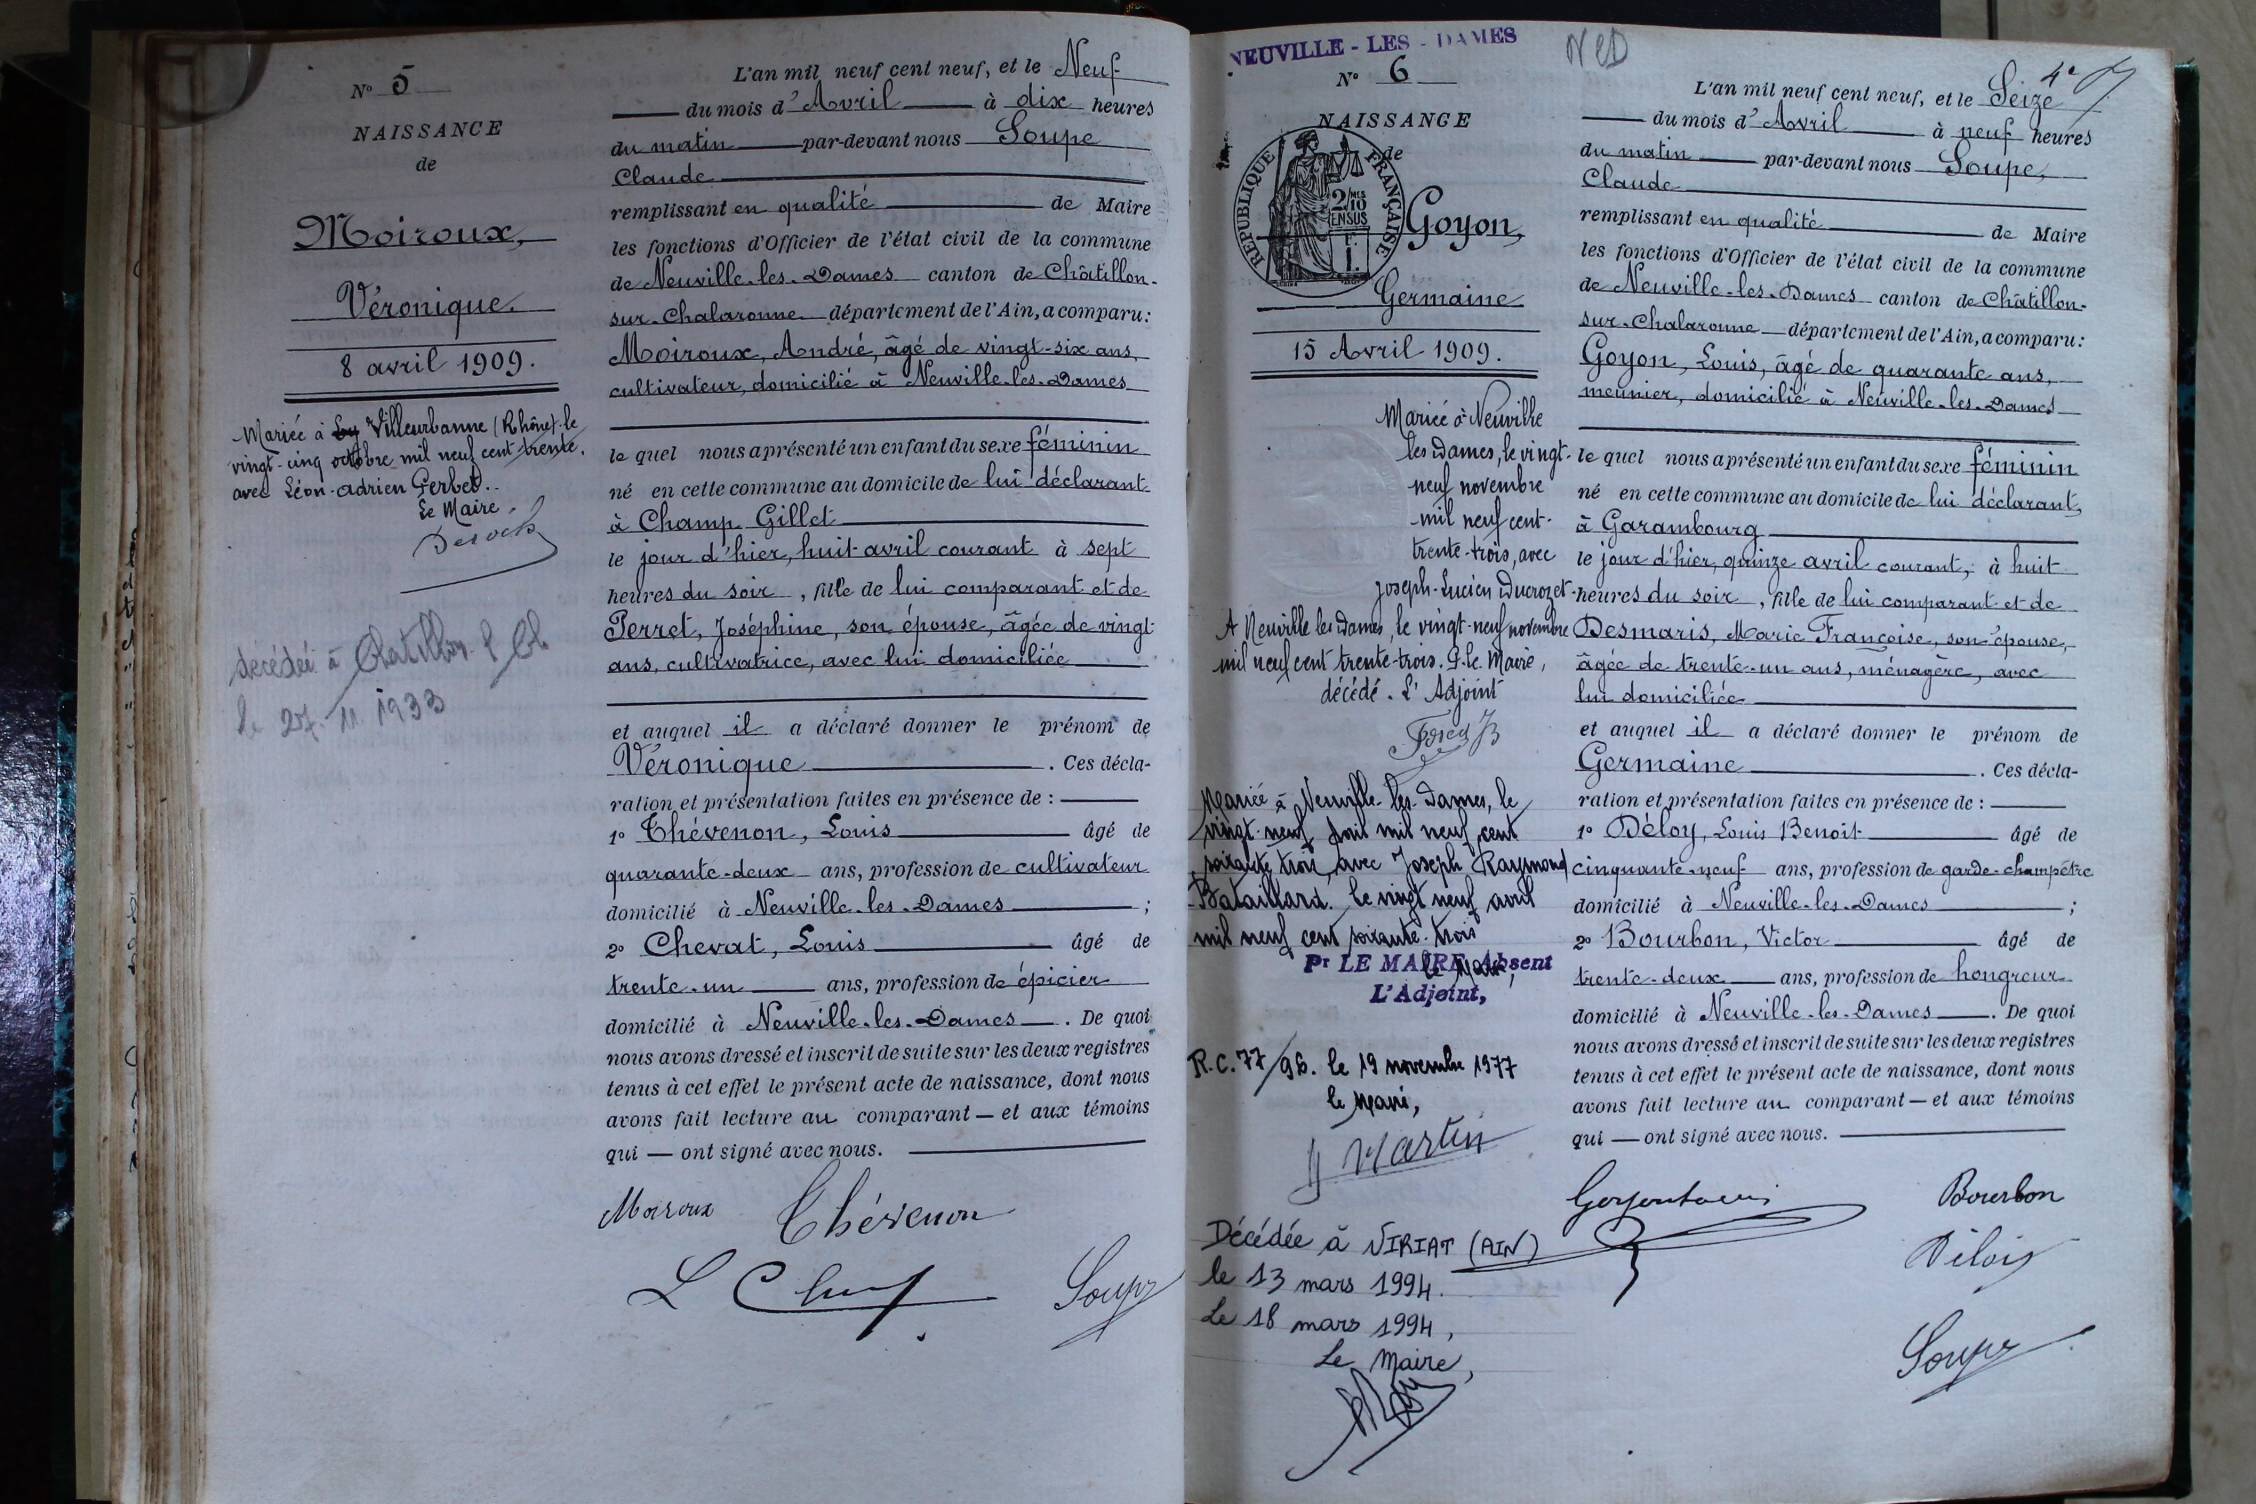 N° 5
NAISSANCE
de
Moiroux,
Véronique.
8 avril 1909.
Mariée à Ly Villeurbanne (Rhône) le
vingt-cinq octobre mil neuf cent trente.
avec Léon-Adrien Gerbet..
Le Maire.
décédée à Chatillon s Ch
le 27. 11 1933
L'an mil neuf cent neuf, et le Neuf
du mois d'Avril à dix heures
du matin par-devant nous Soupe
Claude
remplissant en qualité de Maire
les fonctions d'Officier de l'état civil de la commune
de Neuville-les-Dames canton de Châtillon-
sur-Chalaronne département de l'Ain, a comparu :
Moiroux, André, âgé de vingt-six ans,
cultivateur, domicilié à Neuville-les-Dames
le quel nous a présenté un enfant du sexe féminin
né en cette commune au domicile de lui déclarant
à Champ Gillet
le jour d'hier, huit avril courant à sept
heures du soir, fille de lui comparant et de
Perret, Joséphine, son épouse, âgée de vingt
ans, cultivatrice, avec lui domiciliée
et auquel il a déclaré donner le prénom de
Véronique. Ces décla-
ration et présentation faites en présence de :
1° Thévenon, Louis âgé de
quarante-deux ans, profession de cultivateur
domicilié à Neuville-les-Dames ;
2° Chevat, Louis âgé de
trente-un ans, profession de épicier
domicilié à Neuville-les-Dames. De quoi
nous avons dressé et inscrit de suite sur les deux registres
tenus à cet effet le présent acte de naissance, dont nous
avons fait lecture au comparant — et aux témoins
qui — ont signé avec nous.
Moiroux Thévenon
L Chevat Soupe
NEUVILLE - LES - DAMES
NLD
N° 6
NAISSANCE
de
REPUBLIQUE FRANÇAISE
2/10 MES
EN SUS
Goyon,
Germaine
15 Avril 1909.
Mariée à Neuville
les Dames, le vingt-
neuf novembre
mil neuf cent-
trente-trois, avec
Joseph-Lucien Ducrozet-
A Neuville les Dames, le vingt-neuf novembre
mil neuf cent trente-trois. P. le Maire,
décédé. L'Adjoint
Mariée à Neuville-les-Dames, le
vingt-neuf avril mil neuf cent
soixante trois, avec Joseph Raymond
Bataillard. Le vingt neuf avril
mil neuf cent soixante-trois
le Maire,
Pr LE MAIRE Absent
L'Adjoint,
R.C. 77/96. le 19 novembre 1977
le Maire,
Martin
Décédée à VIRIAT (AIN)
le 13 mars 1994.
Le 18 mars 1994,
Le Maire,
4e
L'an mil neuf cent neuf, et le Seize
du mois d'Avril à neuf heures
du matin par-devant nous Soupe,
Claude
remplissant en qualité de Maire
les fonctions d'Officier de l'état civil de la commune
de Neuville-les-Dames canton de Châtillon-
sur-Chalaronne département de l'Ain, a comparu :
Goyon, Louis, âgé de quarante ans,
meunier, domicilié à Neuville-les-Dames
le quel nous a présenté un enfant du sexe féminin
né en cette commune au domicile de lui déclarant,
à Garambourg
le jour d'hier, quinze avril courant, à huit
heures du soir, fille de lui comparant et de
Desmaris, Marie Françoise, son épouse,
âgée de trente-un ans, ménagère, avec
lui domiciliée
et auquel il a déclaré donner le prénom de
Germaine. Ces décla-
ration et présentation faites en présence de :
1° Déloy, Louis Benoît âgé de
cinquante-neuf ans, profession de garde-champêtre
domicilié à Neuville-les-Dames ;
2° Bourbon, Victor âgé de
trente-deux ans, profession de hongreur
domicilié à Neuville-les-Dames. De quoi
nous avons dressé et inscrit de suite sur les deux registres
tenus à cet effet le présent acte de naissance, dont nous
avons fait lecture au comparant — et aux témoins
qui — ont signé avec nous.
Goyon Louis Bourbon
Déloy
Soupe